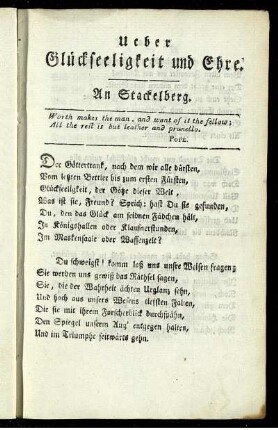 Ueber
Glückseeligkeit und Ehre.
An Stackelberg.
Worth makes the man, and want of it the fellow;
All the rest is but leather and prunello.
POPE.
Der Göttertrank, nach dem wir alle dürsten,
Vom letzten Bettler bis zum ersten Fürsten,
Glückseeligkeit, der Götze dieser Welt,
Was ist sie, Freund? Sprich: hast Du sie gefunden,
Du, den das Glück am seidnen Fädchen hält,
In Königshallen oder Klausnerstunden,
Im Maskensaale oder Waffenzelt?
Du schweigst! komm laß uns unsre Weisen fragen;
Sie werden uns gewiß das Räthsel sagen,
Sie, die der Wahrheit ächten Urglanz sehn,
Und hoch aus unsers Wesens tiefsten Falten,
Die sie mit ihrem Forscherblick durchspähn,
Den Spiegel unserm Aug' entgegen halten,
Und im Triumphe seitwärts gehn.